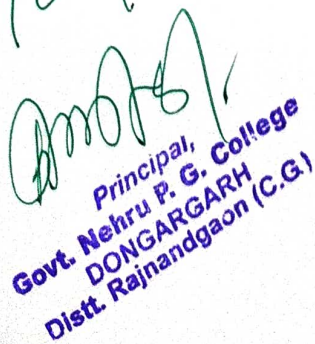 Principal,
Govt. Nehru P. G. College
DONGARGARH
Distt. Rajnandgaon (C.G.)